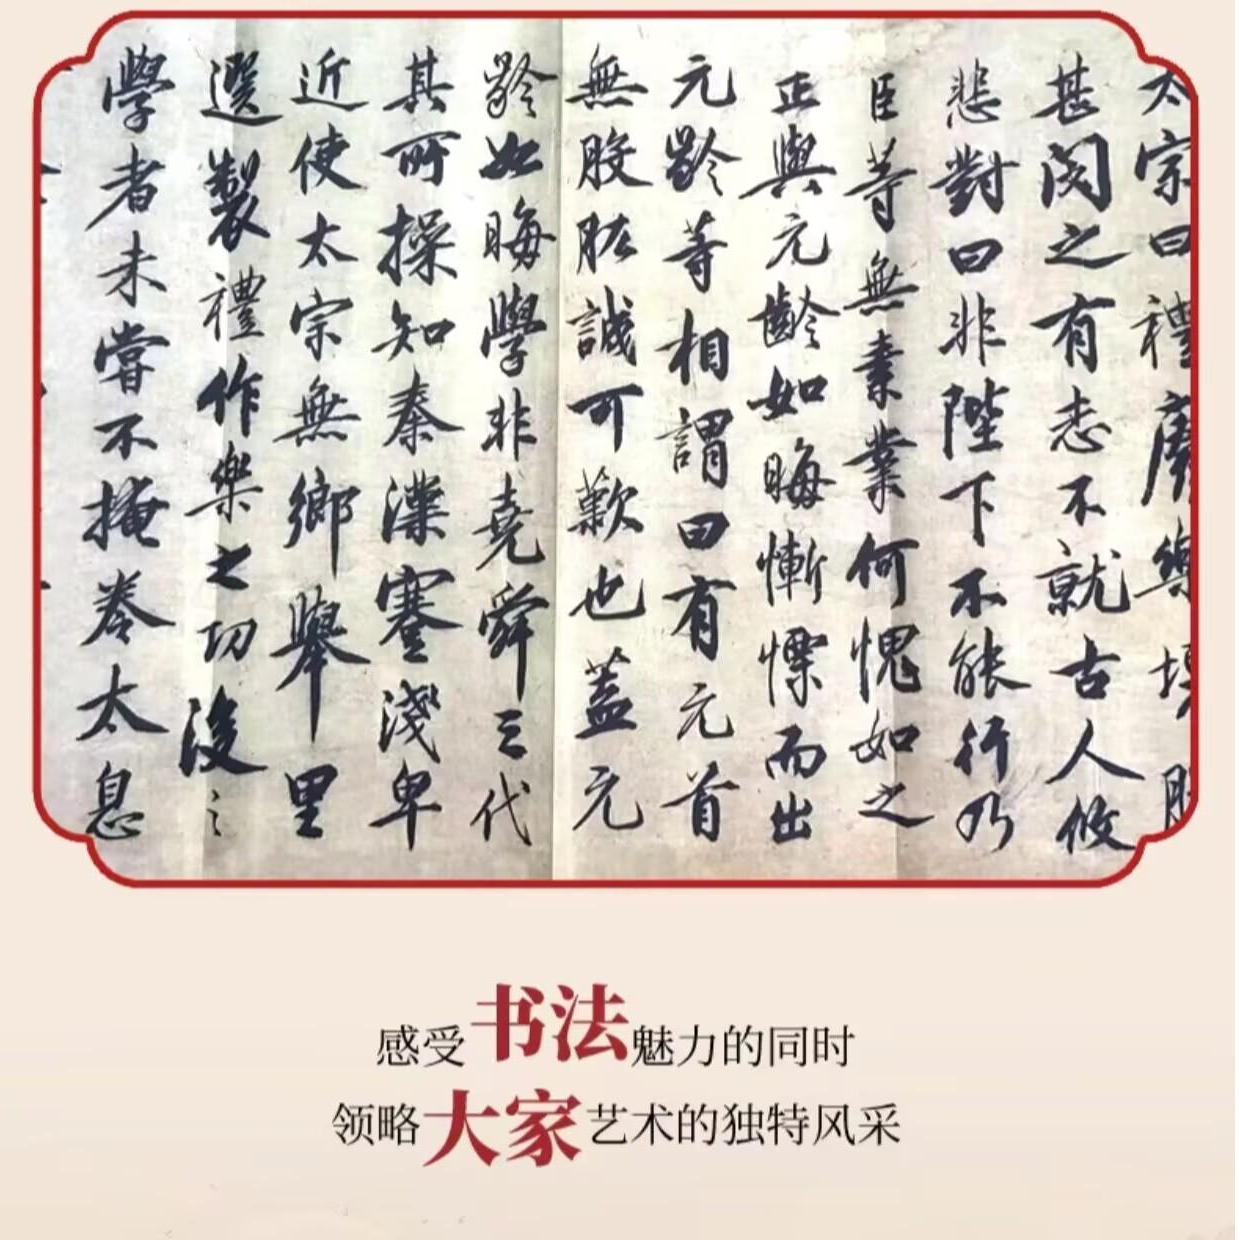 太宗曰禮廢樂壞朕
甚閔之有志不就古人攸
悲對曰非陛下不能行乃
臣等無素業何愧如之
正與元齡如晦慚慄而出
元齡等相謂曰有元首
無股肱誠可歎也蓋元
齡如晦學非堯舜三代
其所操知秦漢蹇淺卑
近使太宗無鄉舉里
選製禮作樂之功後之
學者未嘗不掩卷太息
感受书法魅力的同时
领略大家艺术的独特风采